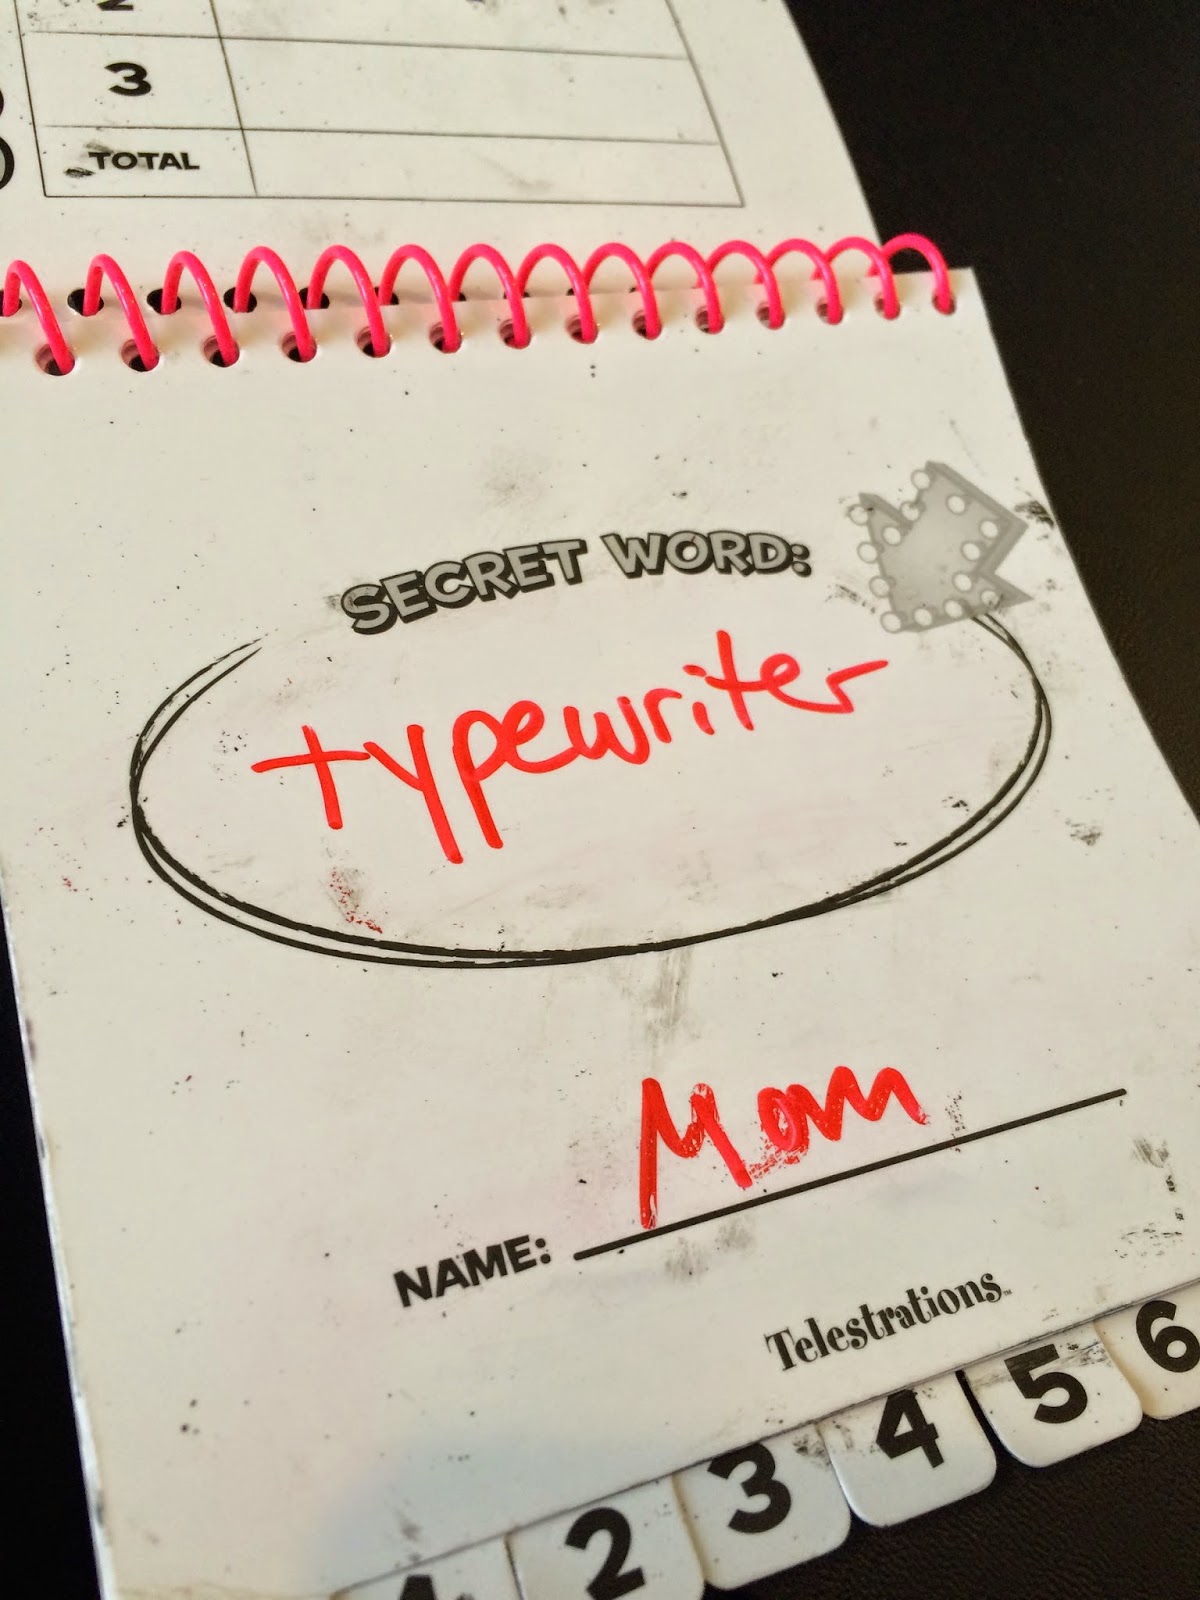 2
3
TOTAL
SECRET WORD:
typewriter
Mom
NAME:
Telestrations™
1 2 3 4 5 6